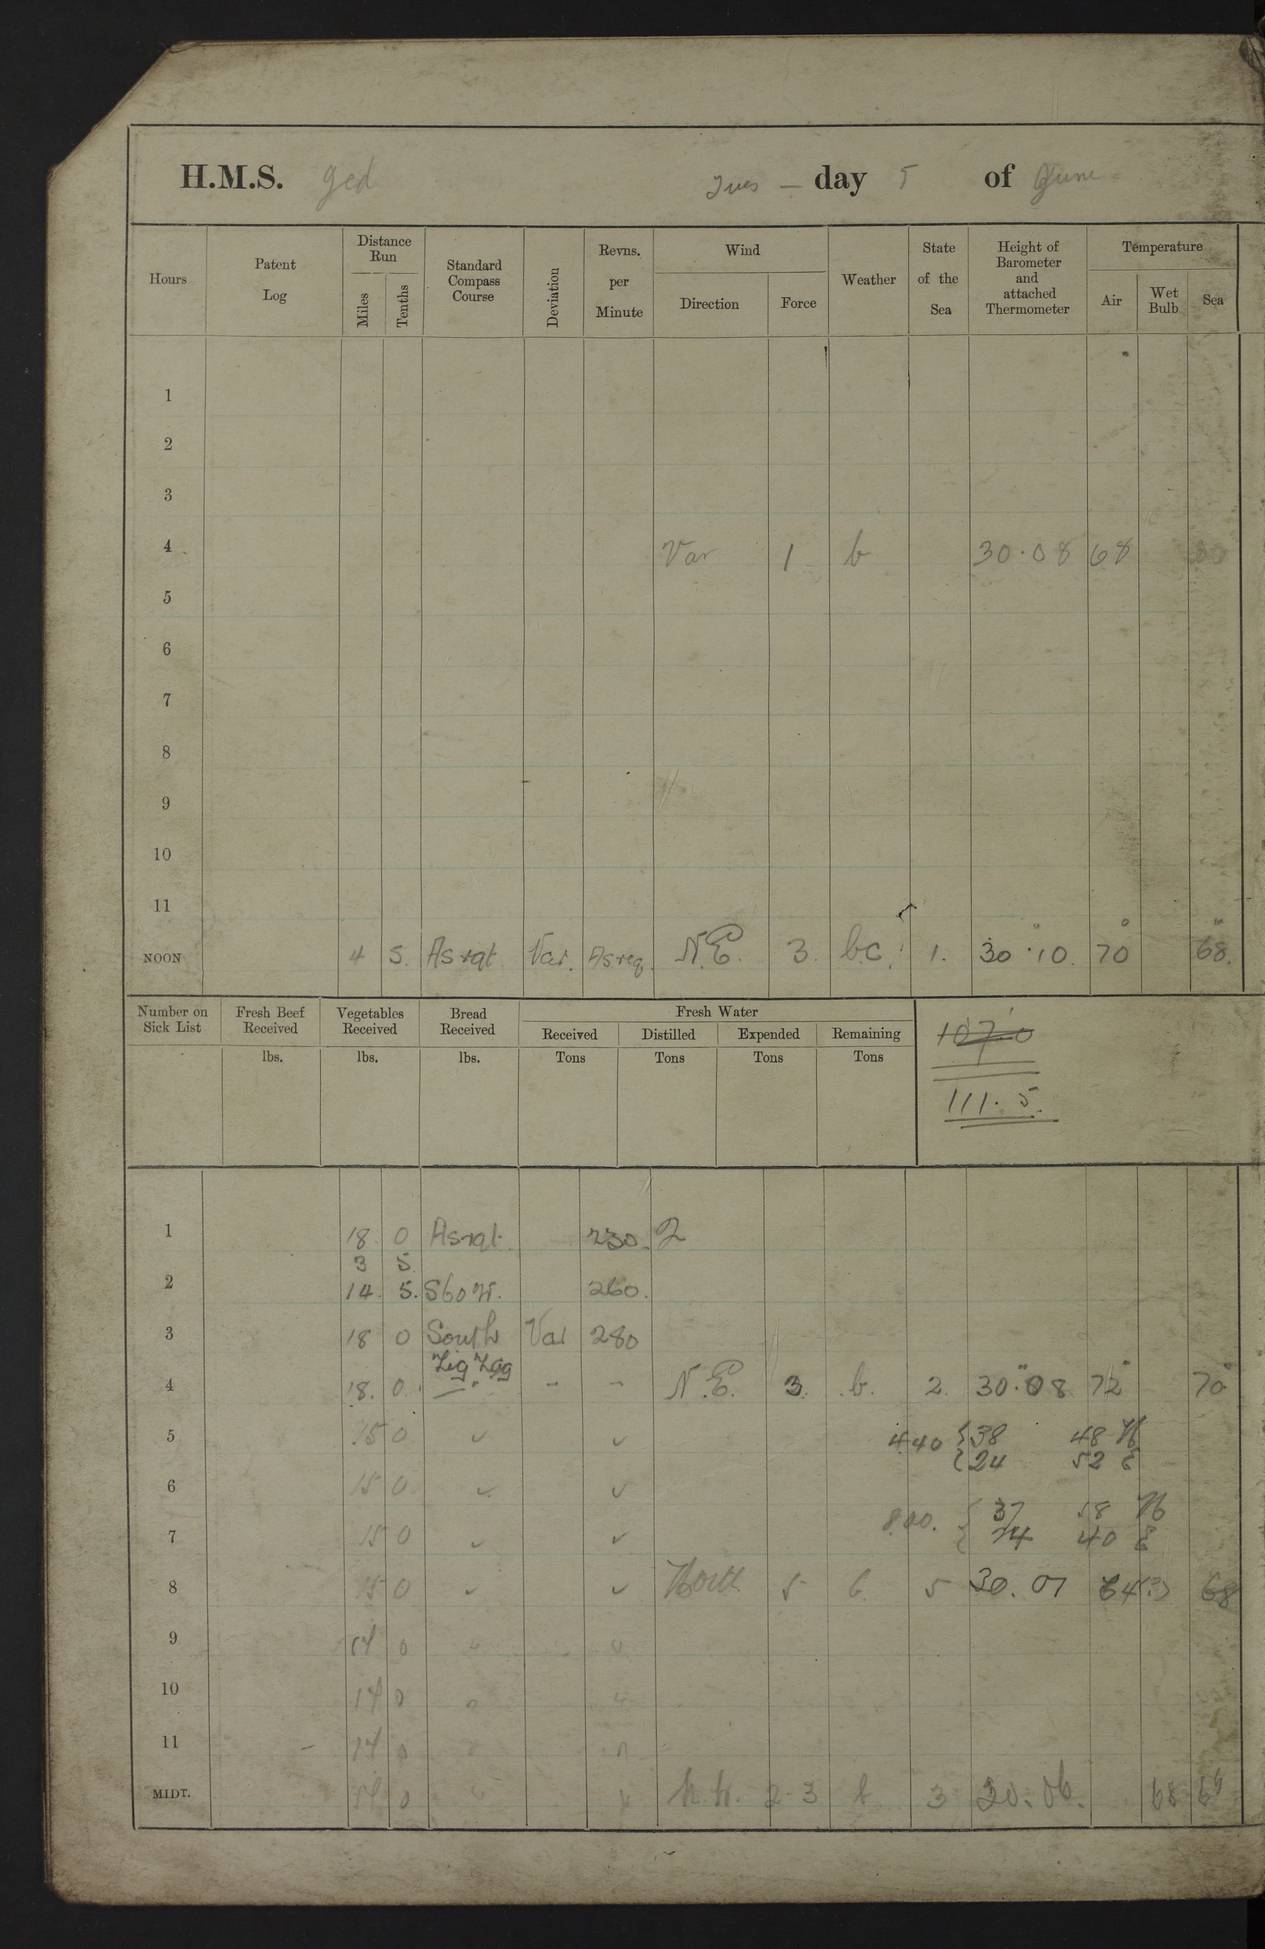 H.M.S. Ged Tues — day 5 of June
Hours Patent Log Distance Run Miles Tenths Standard Compass Course Deviation Revns. per Minute Wind Direction Force Weather State of the Sea Height of Barometer and attached Thermometer Temperature Air Wet Bulb Sea
1
2
3
4 Var 1 b 30·08 68
5
6
7
8
9
10
11
NOON 4 5. As rqt Var. As req. N.E. 3. bc. 1. 30·10. 70 68.
Number on Sick List Fresh Beef Received Vegetables Received Bread Received Fresh Water
Received Distilled Expended Remaining
lbs. lbs. lbs. Tons Tons Tons Tons
111·5.
1 18 0 As rqt. 230.
3 5
2 14. 5. 260.
3 18 0 South Var 280
Zig Zag
4 18. 0. " N.E. 3. b. 2. 30·08 72 70
5 15 0 ✓ ✓ 4.40 { 38 48 N
{ 24 52 E
6 15 0 ✓ ✓
8.00. { 37 58 N
7 15 0 ✓ ✓ { 24 40 E
8 15 0 ✓ ✓ North 5 b 5 30.07 64 68
9 14 0 " "
10 14 0 " "
11 14 0 " "
MIDT. 14 0 " " 2-3 b 3 30.06. 68